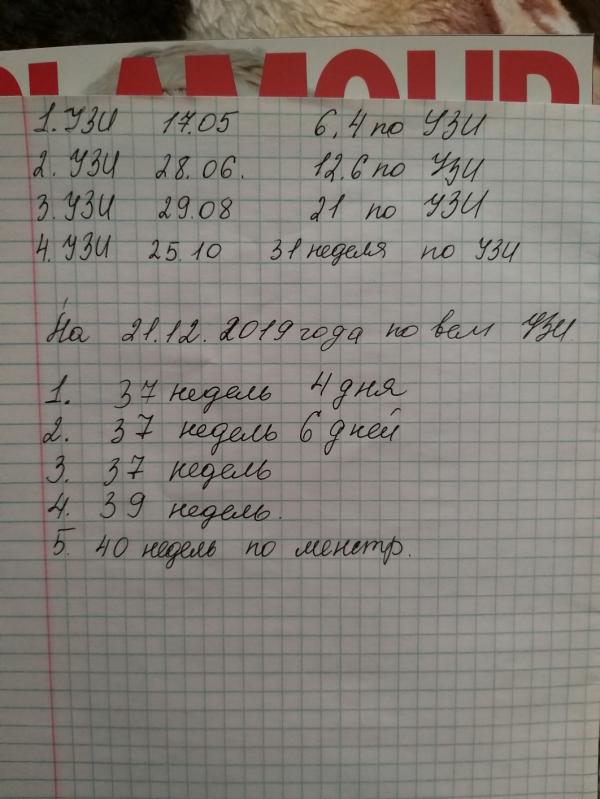 GLAMOUR
1. УЗИ 17.05 6,4 по УЗИ
2. УЗИ 28.06. 12.6 по УЗИ
3. УЗИ 29.08 21 по УЗИ
4. УЗИ 25.10 31 неделя по УЗИ
На 21.12.2019 года по всем УЗИ
1. 37 недель 4 дня
2. 37 недель 6 дней
3. 37 недель
4. 39 недель.
5. 40 недель по менстр.